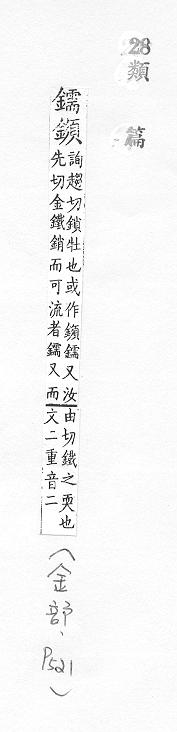 28類篇
鑐
詢趨切鎖牡也或作鑐又汝由切鐵之耎也
先切金鐵銷而可流者鑐又而文二重音二
(金部、P521)